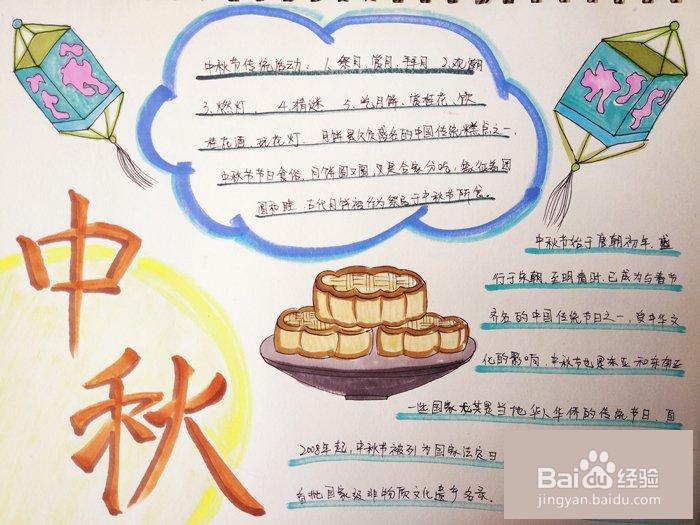 中秋节传统活动：1、祭月、赏月、拜月 2、观潮
3、燃灯 4、猜谜 5、吃月饼、赏桂花、饮
桂花酒 玩花灯 月饼是久负盛名的中国传统糕点之一
中秋节节日食俗。月饼圆又圆，又是合家分吃，象征着团
圆和睦。古代月饼被作为祭品于中秋节所食。
中秋
中秋节始于唐朝初年，盛
行于宋朝，至明清时，已成为与春节
齐名的中国传统节日之一，受中华文
化的影响，中秋节也是东亚和东南亚
一些国家尤其是当地华人华侨的传统节日 自
2008年起，中秋节被列为国家法定日
首批国家级非物质文化遗产名录。
Baidu 经验
jingyan.baidu.com